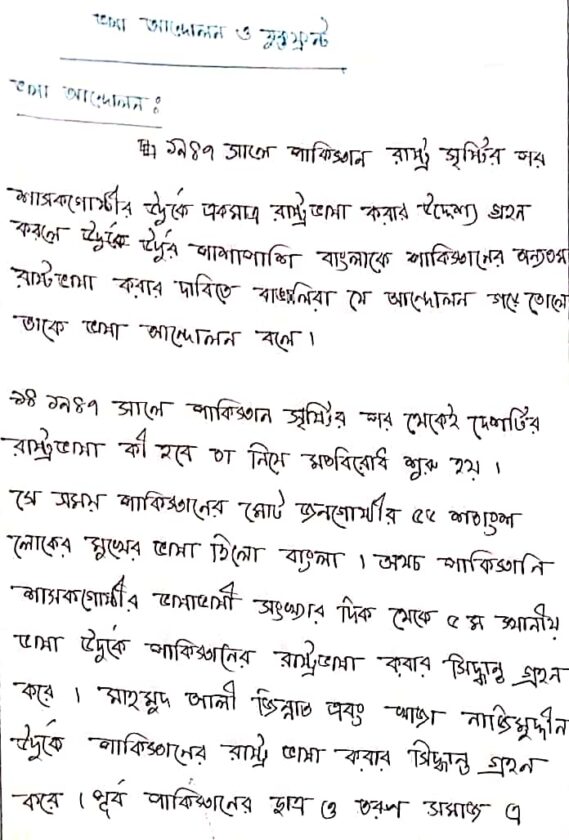 ভাষা আন্দোলন ও যুক্তফ্রন্ট
ভাষা আন্দোলন :
১৯৪৭ সালে পাকিস্তান রাষ্ট্র সৃষ্টির পর
শাসকগোষ্ঠীর উর্দুকে একমাত্র রাষ্ট্রভাষা করার উদ্দেশ্য গ্রহন
করলে উর্দুকে উর্দুর পাশাপাশি বাংলাকে পাকিস্তানের অন্যতম
রাস্টভাষা করার দাবিতে বাঙালিরা যে আন্দোলন গড়ে তোলে
তাকে ভাষা আন্দোলন বলে ।
১৯৪৭ সালে পাকিস্তান সৃষ্টির পর থেকেই দেশটির
রাস্ট্রভাষা কী হবে তা নিয়ে মতবিরোধ শুরু হয় ।
সে সময় পাকিস্তানের মোট জনগোষ্ঠীর ৫৫ শতাংশ
লোকের মুখের ভাষা ছিলো বাংলা । অথচ পাকিস্তানি
শাসকগোষ্ঠীর ভাষাভাষী সংখ্যার দিক থেকে ৫ ম স্থানীয়
ভাষা উর্দুকে পাকিস্তানের রাস্ট্রভাষা করবার সিদ্ধান্ত গ্রহন
করে । মাহমুদ আলী জিন্নাহ এবং খাজা নাজিমুদ্দীন
উর্দুকে পাকিস্তানের রাস্ট্র ভাষা করবার সিদ্ধান্ত গ্রহন
করে । পূর্ব পাকিস্তানের ছাত্র ও তরুণ সমাজ এ